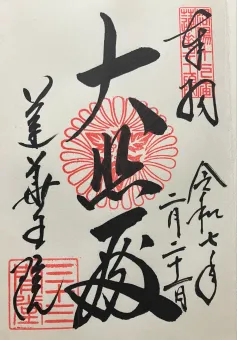 奉拝
大悲殿
蓮華王院
令和七年
二月二十一日